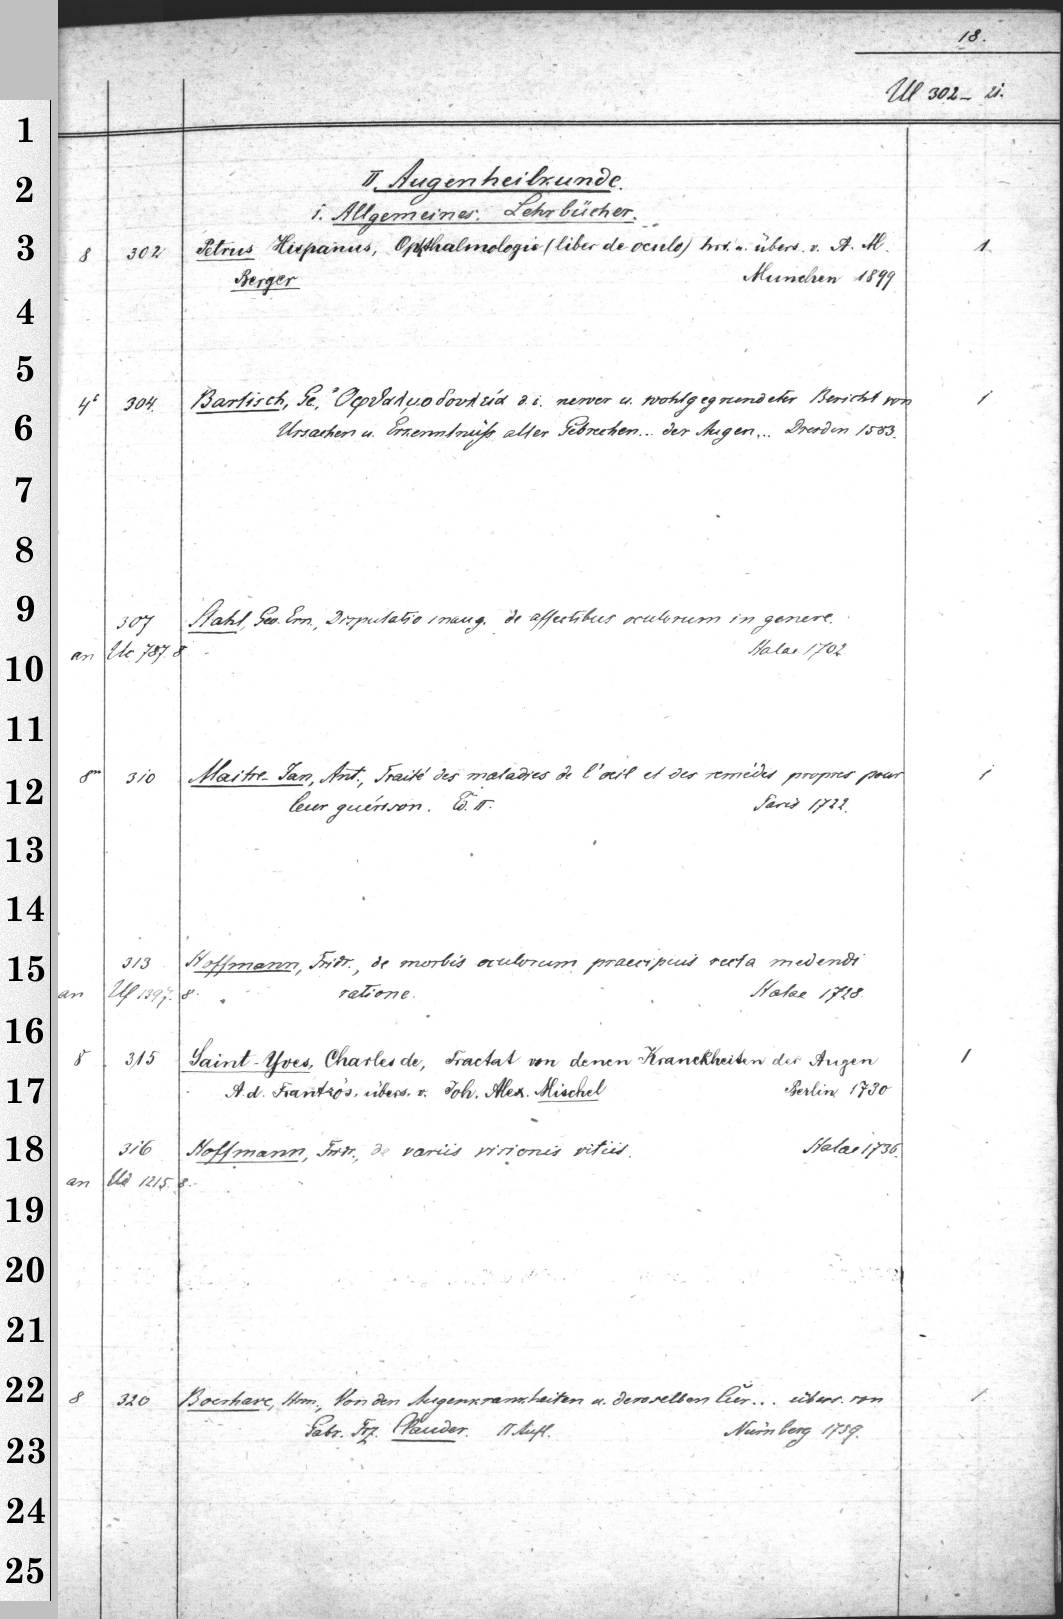 18.
Ul 302- 21.
1
2 II. Augenheilkunde.
1. Allgemeines. Lehrbücher.
3 8 302 Petrus Hispanus, Ophthalmologie (liber de oculo) hrs. u. übers. v. A. M. 1.
Berger München 1899
4
5
4° 304. Bartisch, Ge., Οφθαλμοδουλεία d. i. newer u. wohlgegrundeter Bericht von 1
6 Ursachen u. Erkenntnüss aller Gebrechen... der Augen... Dresden 1583.
7
8
9 307 Stahl, Geo. Ern., Disputatio inaug. de affectibus oculorum in genere.
10 an Uc 787. 8 Halae 1702
11
12 8m 310 Maitre-Jan, Ant., Traité des maladies de l'œil et des remédes propres pour 1
leur guérison. Ed. II. Paris 1722.
13
14
15 313 Hoffmann, Fridr., de morbis oculorum praecipuis recta medendi
an Uf 1397. 8. ratione. Halae 1728.
16
8 315 Saint-Yves, Charles de, Tractat von denen Kranckheiten der Augen 1
17 A. d. Frantzös. übers. v. Joh. Alex. Mischel Berlin 1730
18 316 Hoffmann, Fridr., de variis visionis vitiis. Halae 1736.
an Ud 1215. 8.
19
20
21
22 8 320 Boerhave, Hrm., Von den Augenkrankheiten u. derselben Cur... übers. von 1
23 Gabr. Frz. Clauder. II Aufl. Nürnberg 1759.
24
25